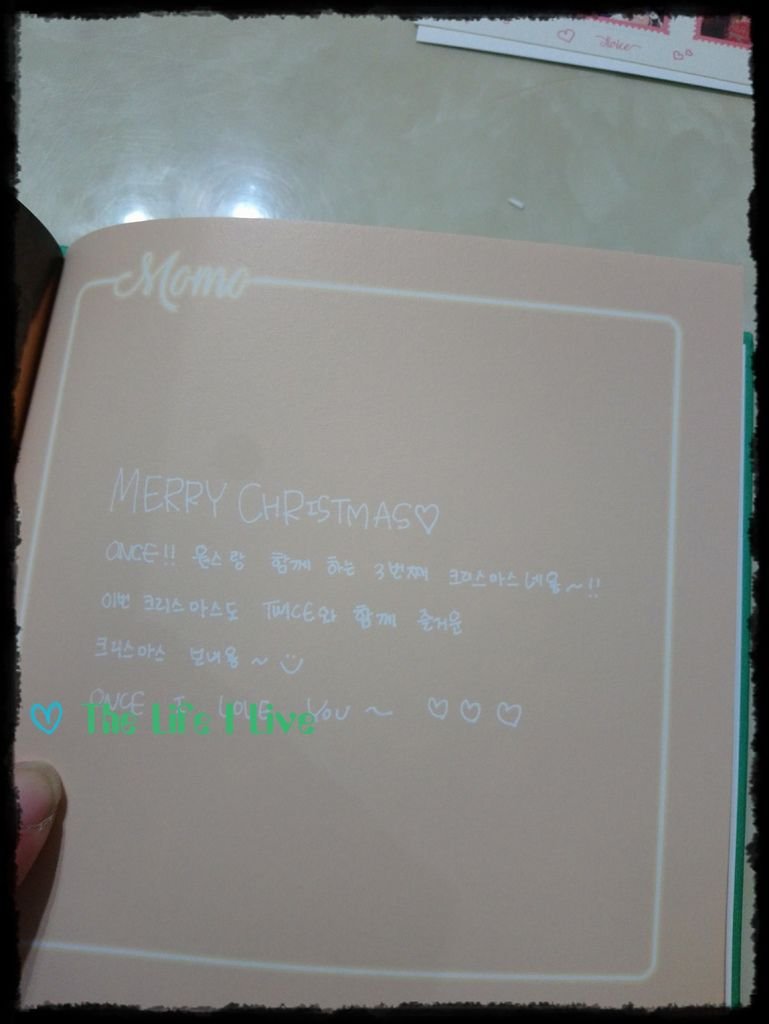 Momo
MERRY CHRISTMAS♡
ONCE!! 원스랑 함께 하는 3번째 크리스마스네용~!!
이번 크리스마스도 TWICE와 함께 즐거운
크리스마스 보내용~
ONCE I LOVE YOU ~ ♡♡♡
♡ The Life I Live